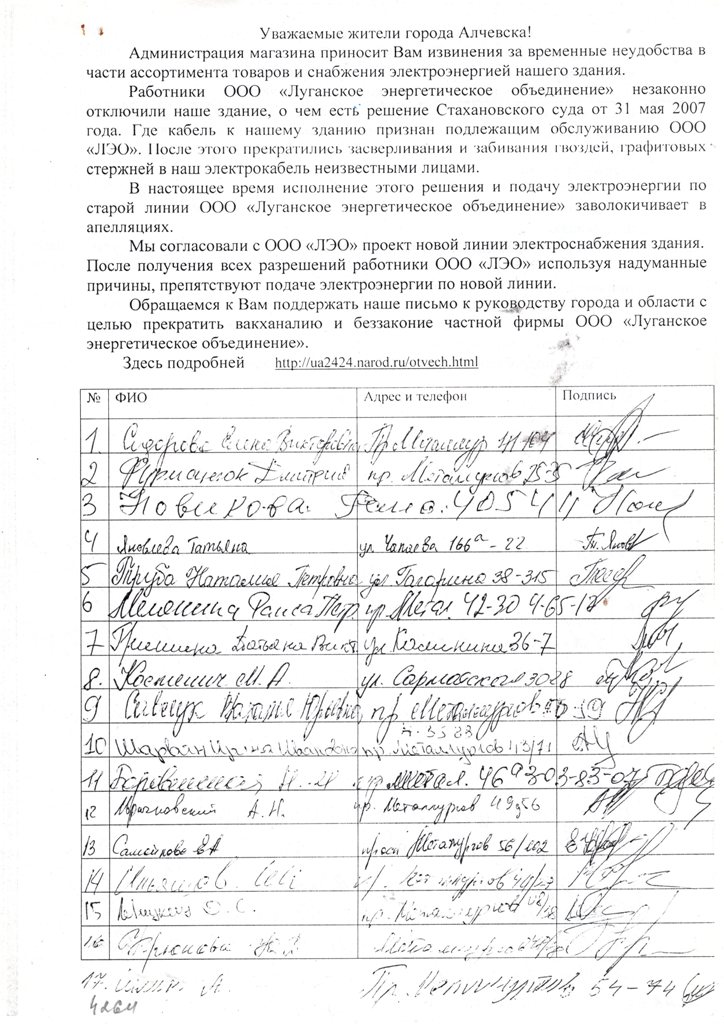 Уважаемые жители города Алчевска!
Администрация магазина приносит Вам извинения за временные неудобства в
части ассортимента товаров и снабжения электроэнергией нашего здания.
Работники ООО «Луганское энергетическое объединение» незаконно
отключили наше здание, о чем есть решение Стахановского суда от 31 мая 2007
года. Где кабель к нашему зданию признан подлежащим обслуживанию ООО
«ЛЭО». После этого прекратились засверливания и забивания гвоздей, графитовых
стержней в наш электрокабель неизвестными лицами.
В настоящее время исполнение этого решения и подачу электроэнергии по
старой линии ООО «Луганское энергетическое объединение» заволокичивает в
апелляциях.
Мы согласовали с ООО «ЛЭО» проект новой линии электроснабжения здания.
После получения всех разрешений работники ООО «ЛЭО» используя надуманные
причины, препятствуют подаче электроэнергии по новой линии.
Обращаемся к Вам поддержать наше письмо к руководству города и области с
целью прекратить вакханалию и беззаконие частной фирмы ООО «Луганское
энергетическое объединение».
Здесь подробней http://ua2424.narod.ru/otvech.html
№ ФИО Адрес и телефон Подпись
1. Сидорова Елена Викторовна Пр Металлург
2 Дмитрий пр. Металургов 25-35
3 Новикова 4054
4 Яковлева Татьяна ул. Чапаева 166а - 22
5 Труба Наталия Петровна ул Гагарина 38-315
6 Раиса Петр. пр. Метал. 42-30 4-65-12
7 Гришина Татьяна Викт. ул Калинина 36-7
8. Костенич М. А. ул. Сарматская
9 Савчук Наталья Юрьевна пр Металлургов
10 Ирина Ивановна пр. Металлургов 43/71
11 пр. Метал. 46а
12 А. Н. пр. Металлургов 49д56
13 Самойлова просп Металургов 56/102
14
15 пр. Металлургов
16 Металлургов
17. А. Пр. Металлургов 54-74
4264